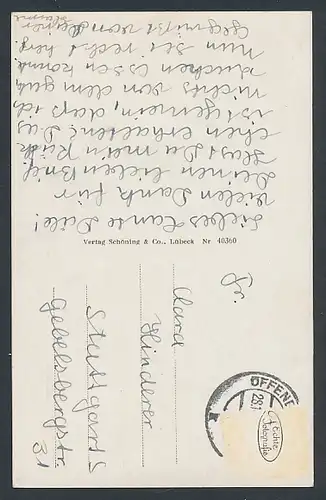 Liebes Tante Dile!
Vielen Dank für
Deinen lieben Brief
Hast Du mein
chen erhalten? Das
ist gemein, das ich
nichts von dem gute
Kuchen essen konnte
nun sei recht herzl.
gegrüßt von Deiner
Verlag Schöning & Co., Lübeck Nr 40360
Fr.
Hinderer
Stuttgart S
Gebelsbergstr.
31
OFFENB
Echte
Fotografie